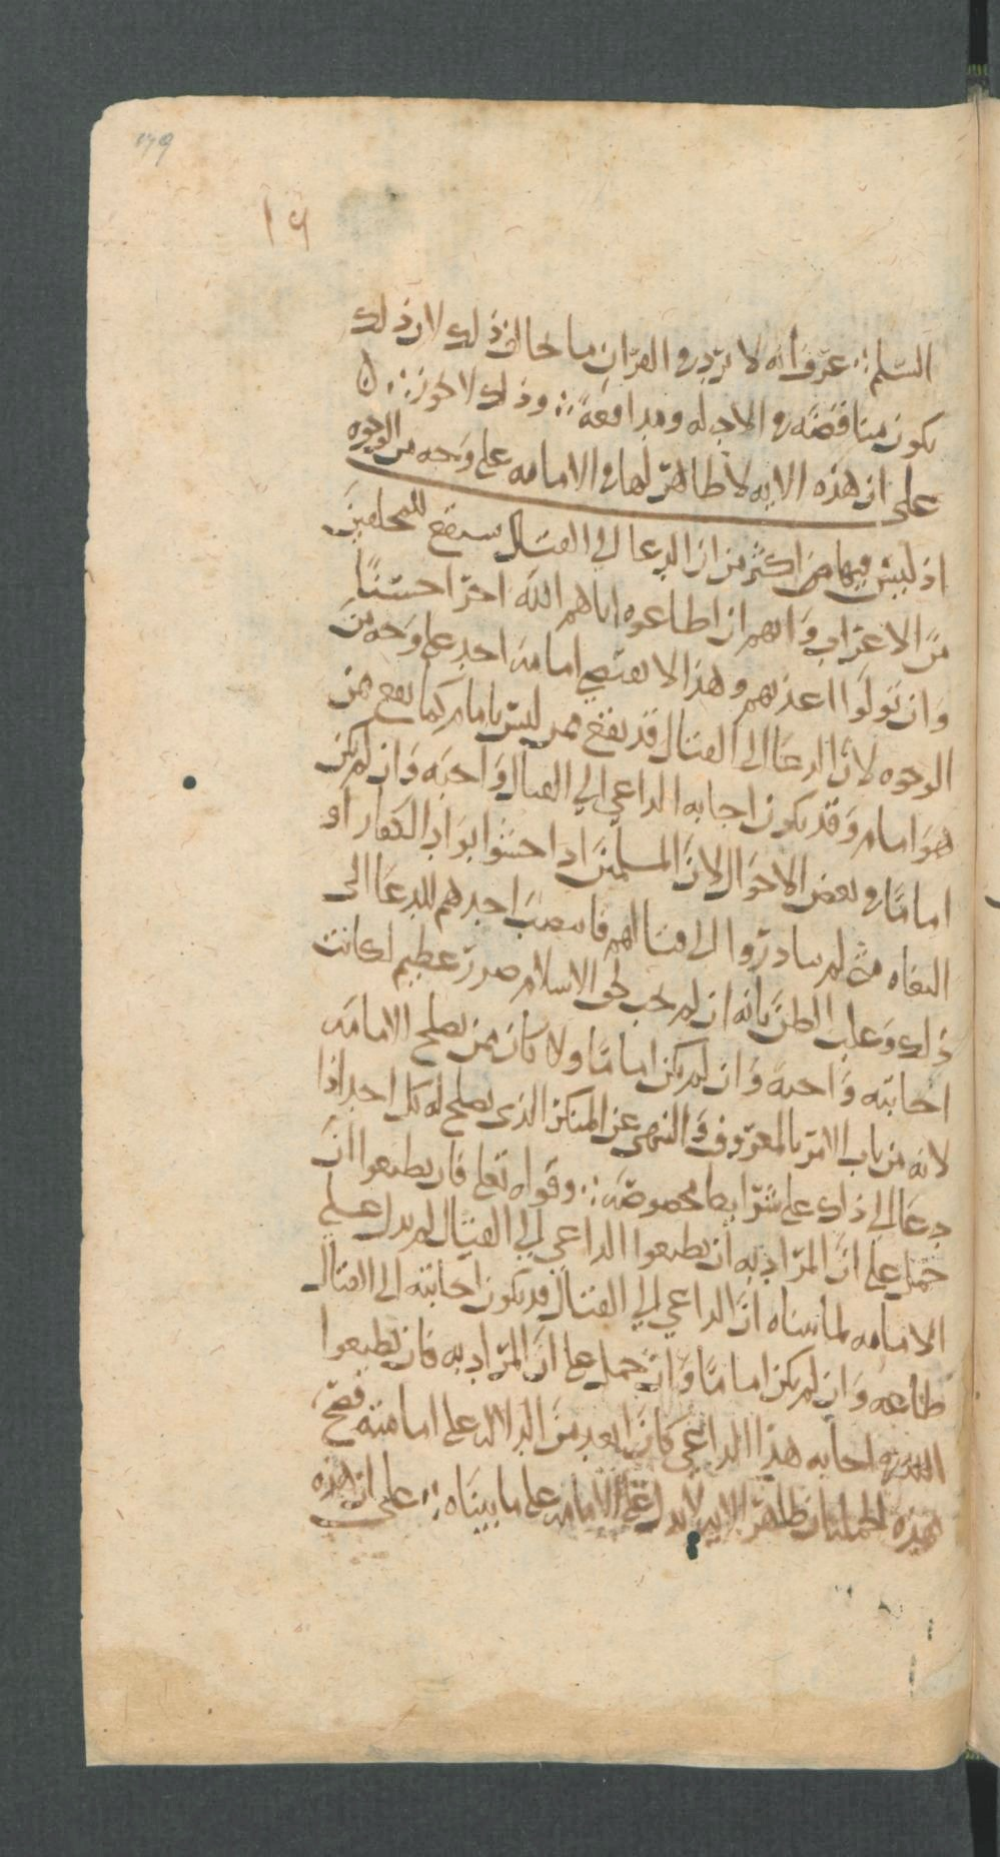 ١٩
السلم ؞ عرف انه لا يرد في القران ما خالف ذلك لان ذلك
يكون مناقضة في الادله ومدافعة ؞ وذلك لا يجوز ؞ ن
على ان هذه الايه لا ظاهر لها في الامامه على وجه من الوجوه
اذ ليس فيها اكثر من ان الدعا الى القتال سيقع للمخلفين
من الاعراب وانهم ان اطاعوه اتاهم الله اجرا حسنا
وان تولوا عذبهم وهذا لا يقتضي امامة احد على وجه من
الوجوه لان الدعا الى القتال قد يقع ممن ليس بامام كما يقع ممن
هو امام وقد يكون اجابه الداعي الى القتال واجبه وان لم يكن
اماما في بعض الاحوال لان المسلمين اذا احسوا بوادر الكفار او
البغاه متى لم يبادروا الى قتالهم فانتصب احدهم للدعا الى
ذلك وغلب الظن بانه ان لم يجب لحق الاسلام ضرر عظيم لكانت
اجابته واجبه وان لم يكن اماما ولا كان ممن يصلح للامامه
لانه من باب الامر بالمعروف والنهي عن المنكر الذي يصلح له كل احد اذا
دعا الى ذلك على شرايط مخصوصه ؞ وقوله تعلى فان تطيعوا ان
حمل على ان المراد به ان تطيعوا الداعي الى القتال لم يدل على
الامامه لما بيناه ان الداعي الى القتال قد يكون اجابته الى القتال
طاعه وان لم يكن اماما وان حمل على ان المراد به فان تطيعوا
الله في اجابه هذا الداعي كان ابعد من الدلاله على امامته فصح
بهذه الجمله ان ظاهر الايه لا يدل على الامامه على ما بيناه ؞ على ان هذه